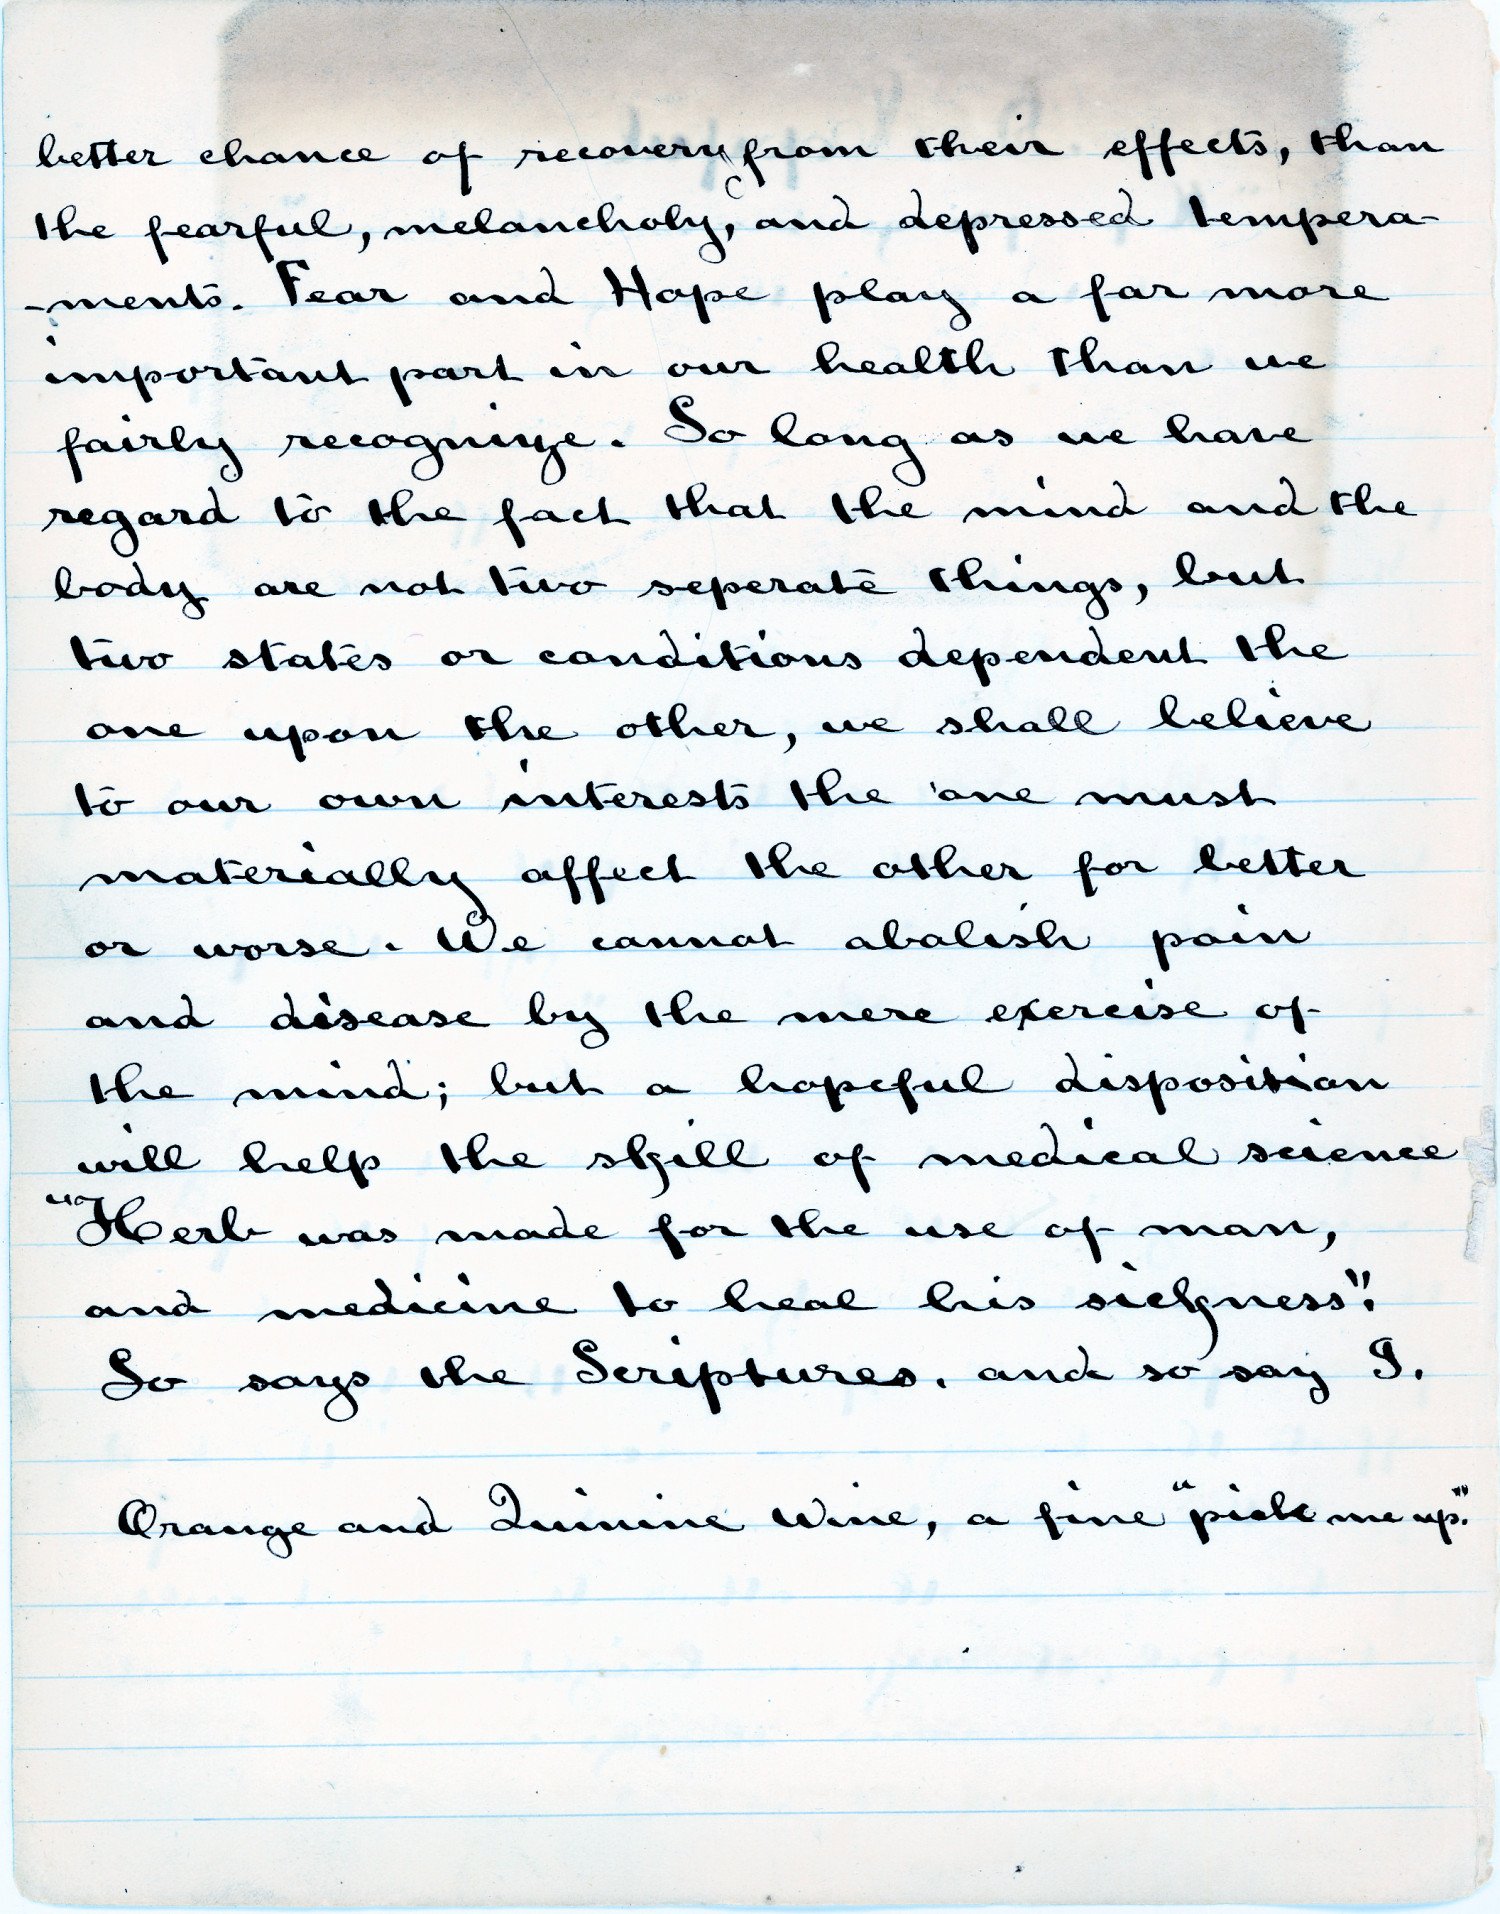 better chance of recovery from their effects, than
the fearful, melancholy, and depressed tempera-
-ments. Fear and Hope play a far more
important part in our health than we
fairly recognize. So long as we have
regard to the fact that the mind and the
body are not two seperate things, but
two states or conditions dependent the
one upon the other, we shall believe
to our own interests the one must
materially affect the other for better
or worse. We cannot abolish pain
and disease by the mere exercise of
the mind; but a hopeful disposition
will help the skill of medical science
"Herb was made for the use of man,
and medicine to heal his sickness".
So says the Scriptures. and so say I.
Orange and Quinine Wine, a fine "pick me up".